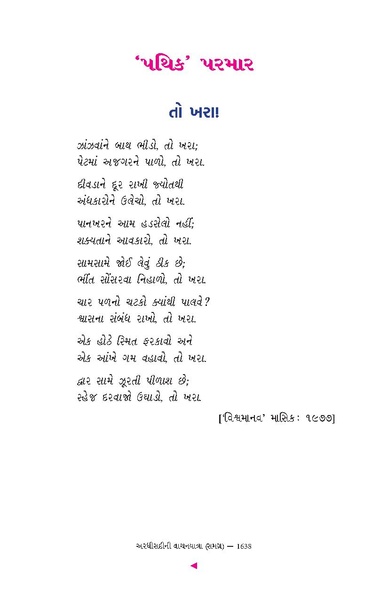 ‘પથિક’ પરમાર
તો ખરા!
ઝાંઝવાંને બાથ ભીડો, તો ખરા;
પેટમાં અજગરને પાળો, તો ખરા.
દીવડાને દૂર રાખી જ્યોતથી
અંધકારોને ઉલેચો, તો ખરા.
પાનખરને આમ હડસેલો નહીં;
શક્યતાને આવકારો, તો ખરા.
સામસામે જોઈ લેવું ઠીક છે;
ભીંત સોંસરવા નિહાળો, તો ખરા.
ચાર પળનો ચટકો ક્યાંથી પાલવે?
શ્વાસના સંબંધ રાખો, તો ખરા.
એક હોઠે સ્મિત ફરકાવો અને
એક આંખે ગમ વહાવો, તો ખરા.
દ્વાર સામે ઝૂરતી પીળાશ છે;
સ્હેજ દરવાજો ઉઘાડો, તો ખરા.
[‘વિશ્વમાનવ’ માસિક: ૧૯૭૭]
અરધીસદીની વાચનયાત્રા (સમગ્ર) — 1638